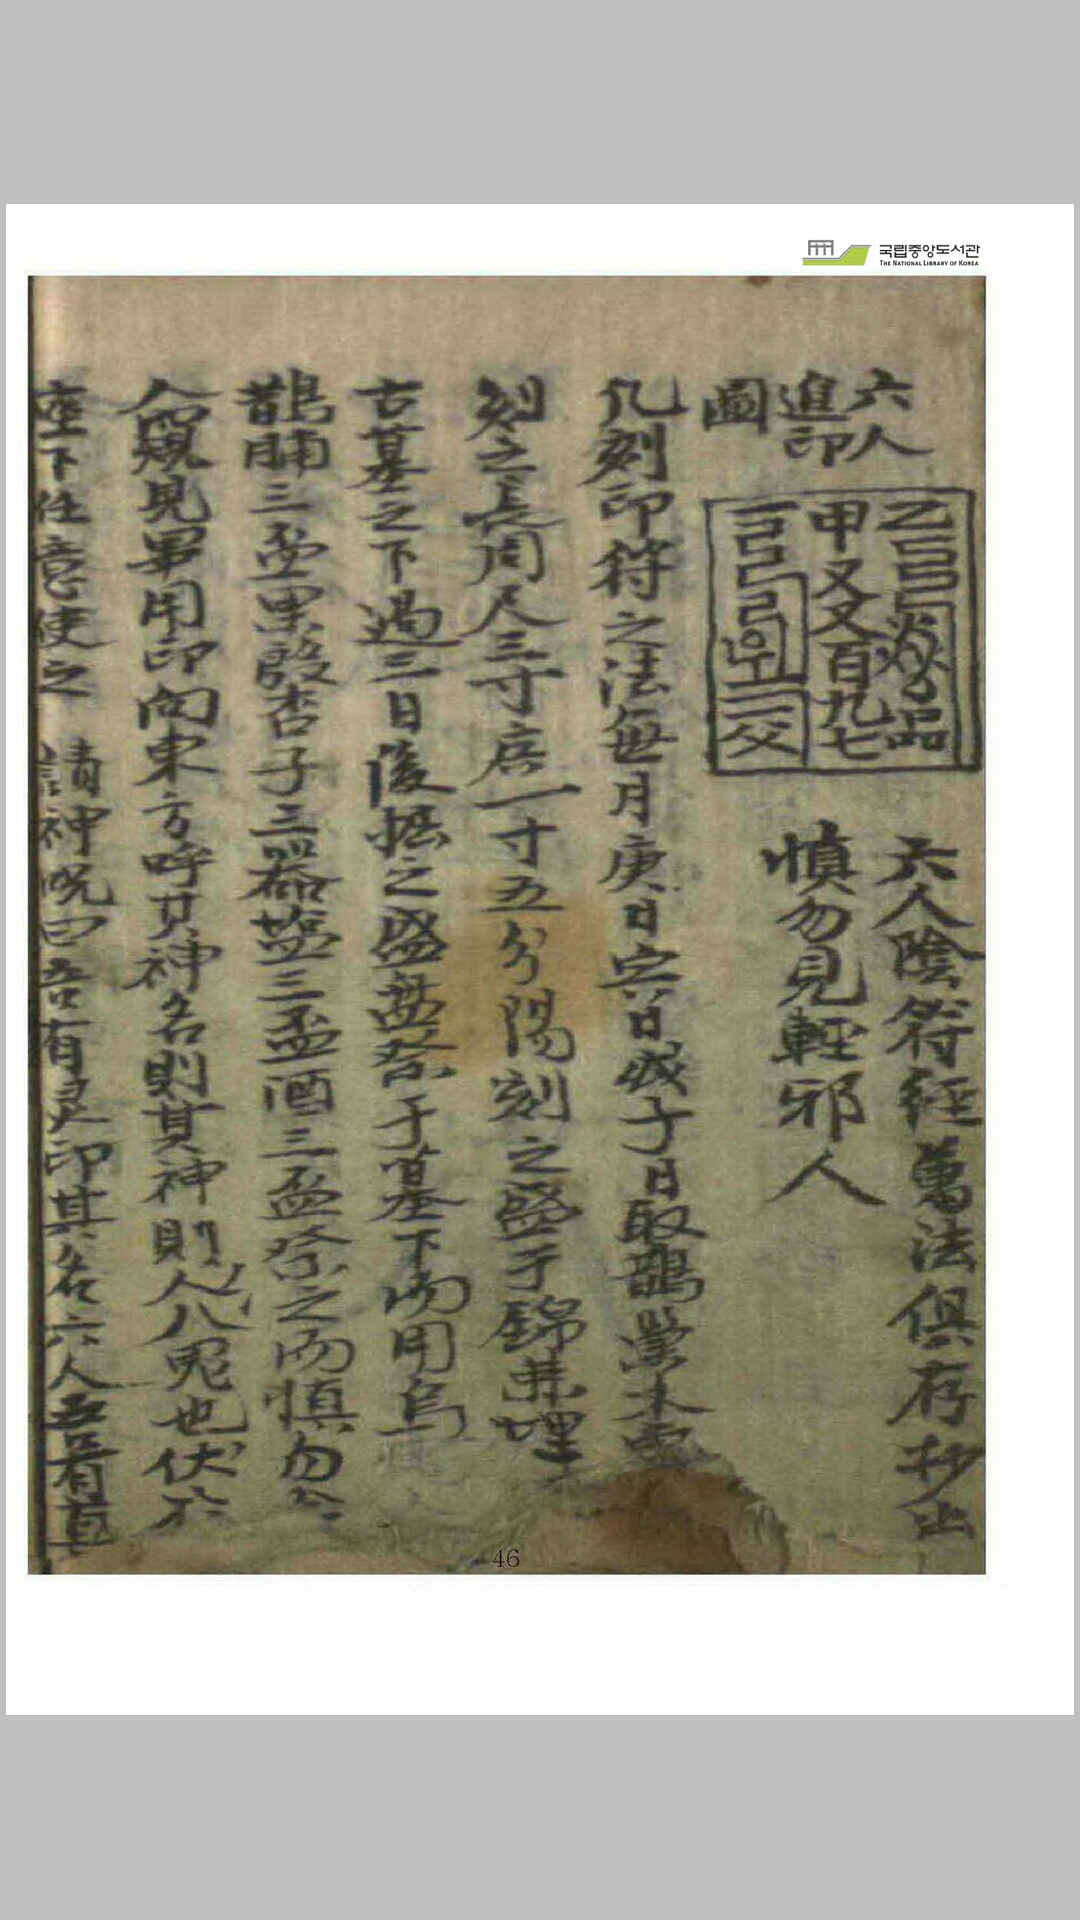 국립중앙도서관
THE NATIONAL LIBRARY OF KOREA
六人
進印
圖
甲又又百九七
六人陰符經萬法俱存抄出
慎勿見輕邪人
凡刻印符之法每月庚日 日戊子日取鵲 木
刻之長周尺三寸 一寸五分陽刻之盛于錦 埋
古墓之下過三日後掘之盛 祭于墓下 用烏
鵲脯三 杏子三器 三盃酒三盃祭之而慎勿令
人窺見畢用印向東方呼其神名則其神則 人八 也伏於
座下任意使之 請神呪曰吾有灵印其名六人
46